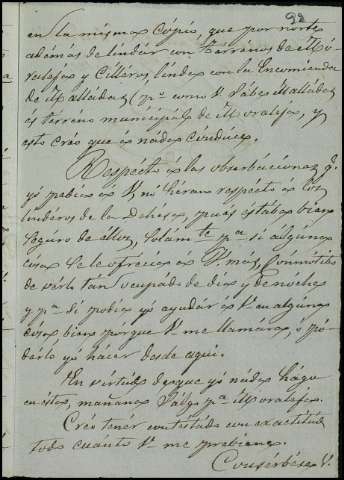 92
en la misma Copia, que por norte
además de lindar con terrenos de Mo
ralejas y Cilleros, linda con la Encomienda
de Malladas (pª como V. sabe Malladas
és terreno municipal de Moraleja, y
esto creo que á nada conduce.
Respecto á las observaciones q.
yo hacía á V. no heran respecto á los
linderos de la Dehesa, pues estaba bien
seguro de éllos, solamte pª si alguna
cosa se le ofrecia á V. mas, con motivo
de verle tan ocupado de dia y de noche
y pª si podia yó ayudar á V. en alguna
cosa bien porque V. me llamara, o po
derlo yó hacer desde aquí.
En virtud de que yó nada hago
en esta, mañana salgo pª Moraleja.
Creo tener contestado con exactitud
todo cuanto V. me
Consérbese V.